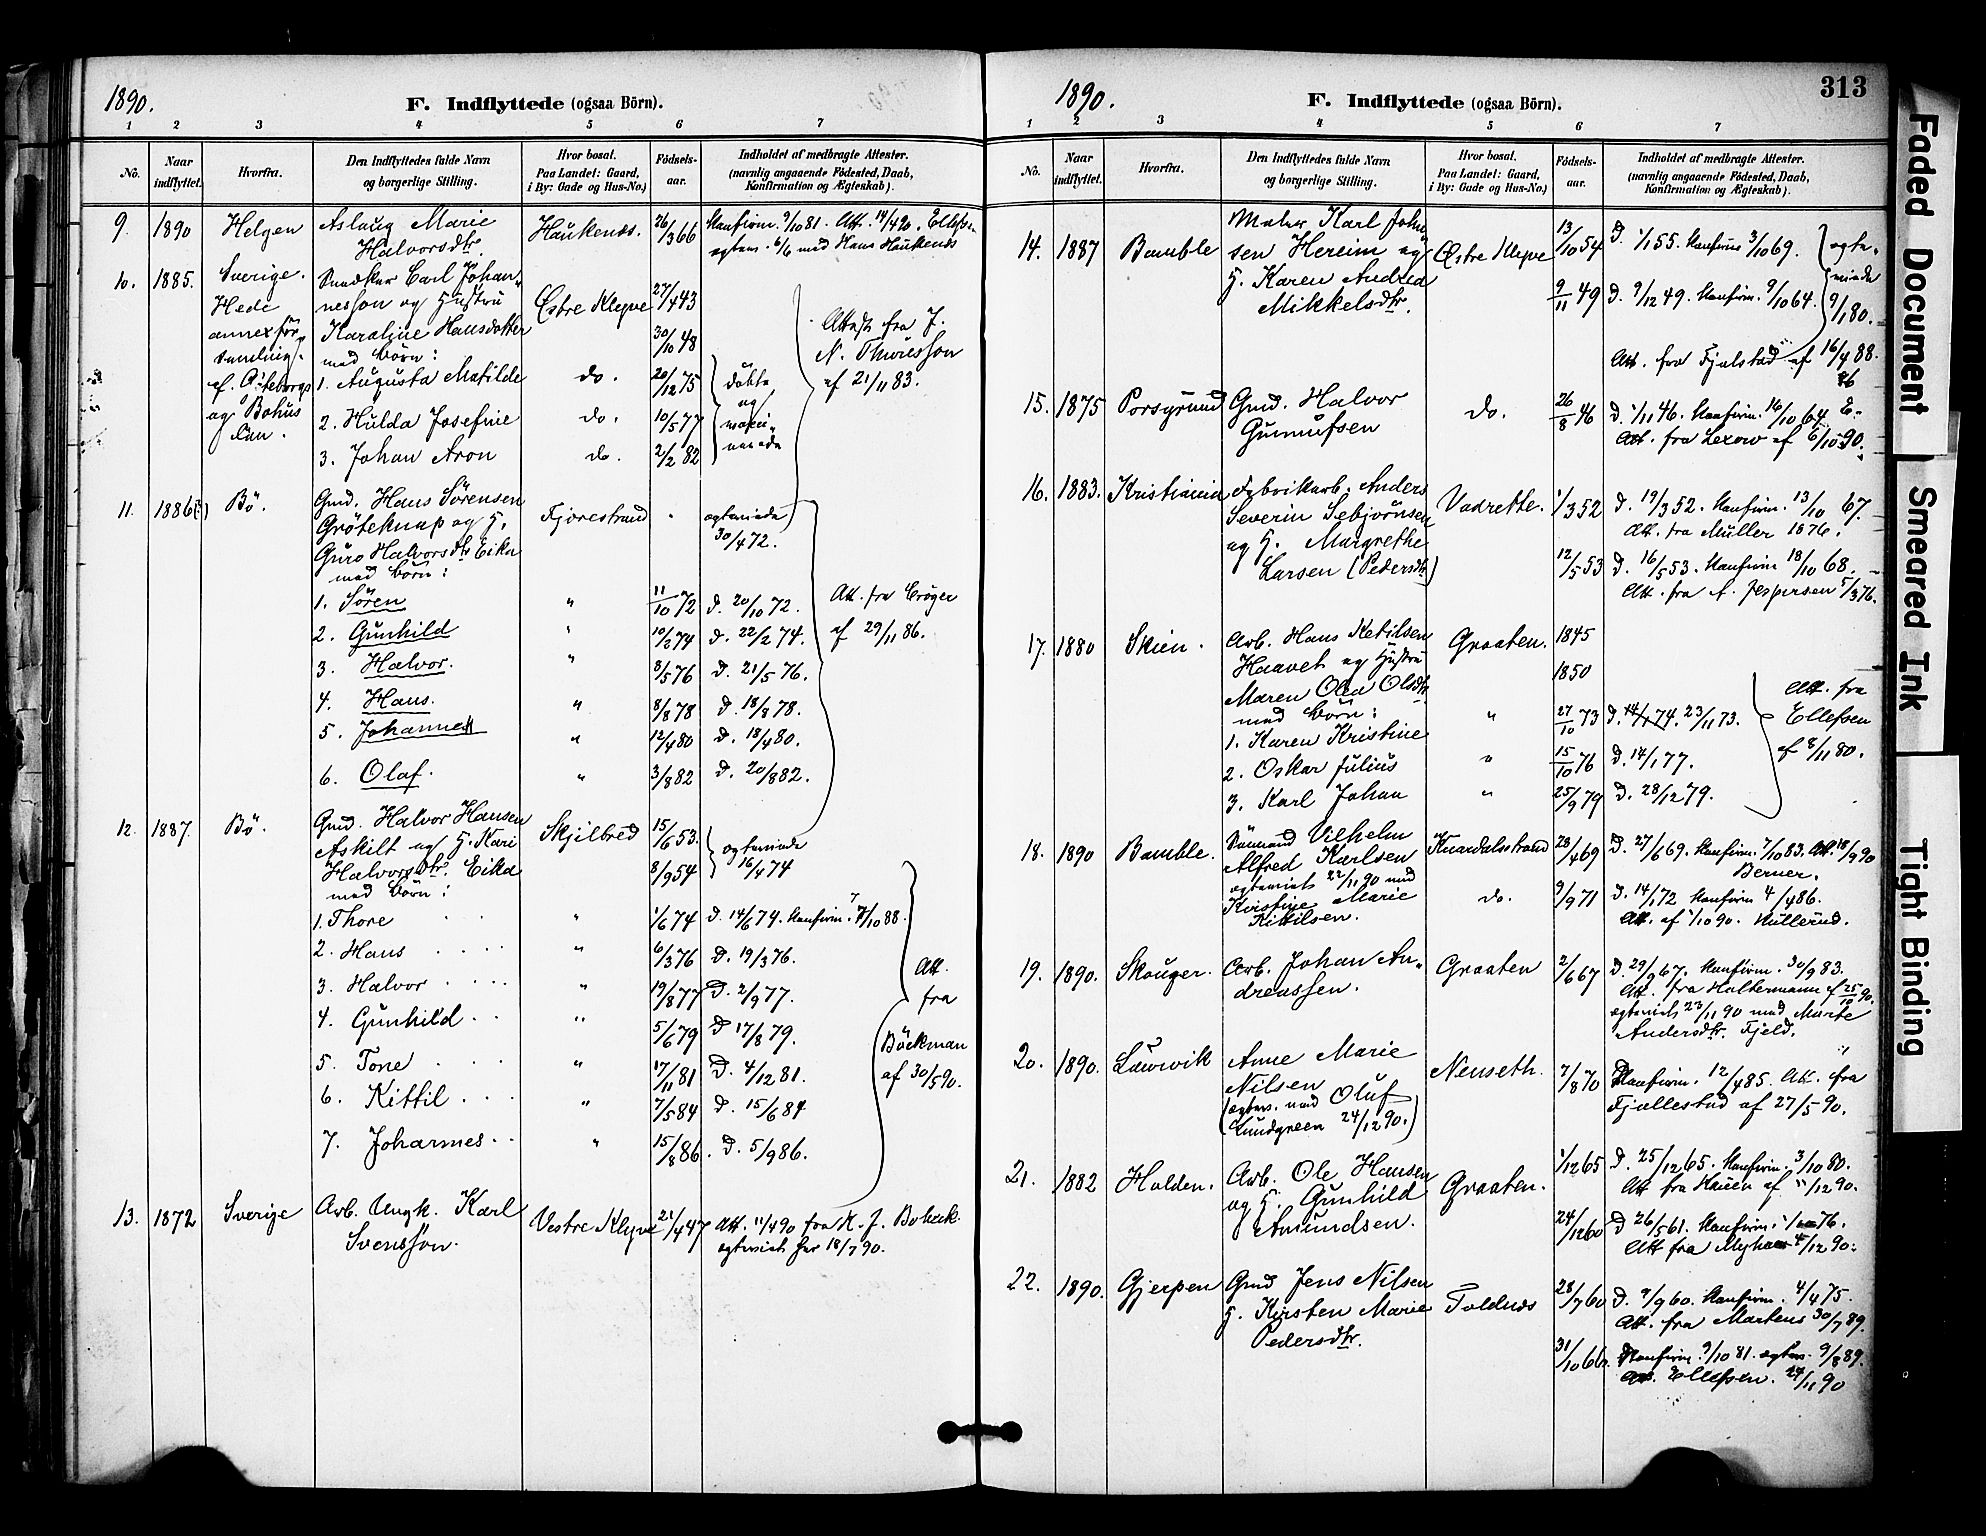 1890.
F. Indflyttede (ogsaa Börn).
1 2 3 4 5 6 7
No.
Naar indflyttet.
Hvorfra.
Den Indflyttedes fulde Navn og borgerlige Stilling.
Hvor bosat. Paa Landet: Gaard, i By: Gade og Hus-No.)
Födsels-aar.
Indholdet af medbragte Attester. (navnlig angaaende Födested, Daab, Konfirmation og Ægteskab).
9. 1890 Helgen Aslaug Marie Haukenæs. 26/3 66 Konfirm. 9/10 81. Att. 14/4 90. Ellefsen
Halvorsdtr. egtev. 6/6 med Hans Haukenæs
10. 1885. Sverige. Snedker Carl Johan-
Hede nesson og Hustru Østre Klyve 27/4 43
annexför- Karoline Hansdotter 30/10 48 Attest fra J.
samling med børn: N. Thuresson
af Göteborgs 1. Augusta Matilde do. 20/12 75 döbte af 21/11 83.
og Bohus 2. Hulda Josefine do. 10/5 77 og
Län. 3. Johan Aron do. 2/2 82
11. 1886(?) Bö. Gmd. Hans Sörensen Fjørestrand egteviede
Gröteknap og H. 30/4 72.
Guro Halvorsdtr Eika
med børn:
1. Sören " 11/10 72 d. 20/10 72. Att. fra Cröger
2. Gunhild " 10/2 74 d. 22/2 74. af 29/11 86.
3. Halvor. " 8/5 76 d. 21/5 76.
4. Hans. " 8/8 78 d. 18/8 78.
5. Johannes " 12/4 80 d. 18/4 80.
6. Olaf. " 3/8 82 d. 20/8 82.
12. 1887. Bö. Gmd. Halvor Hansen Skjilbred 15/6 53. egteviede
Askilt og H. Kari 8/9 54 16/4 74
Halvorsdtr. Eika
med børn:
1. Thore " 1/6 74 d. 14/6 74. Konfirm. 7/10 88.
2. Hans " 6/3 76 D. 19/3 76. Att.
3. Halvor " 19/8 77 D. 2/9 77. fra
4. Gunhild " 5/6 79 D 17/8 79. Böckman
5. Tone " 17/11 81 D. 4/12 81. af 30/5 90.
6. Kittil " 7/5 84 D. 15/6 84
7. Johannes " 15/8 86. D. 5/9 86.
13. 1872 Sverige Arb. Ungk. Karl Vestre Klyve 21/4 47 Att. 11/4 90 fra K. J.
Svensson. egteviet her 18/7 90.
1890.
F. Indflyttede (ogsaa Börn).
313
1 2 3 4 5 6 7
No.
Naar indflyttet.
Hvorfra.
Den Indflyttedes fulde Navn og borgerlige Stilling.
Hvor bosat. Paa Landet: Gaard, i By: Gade og Hus-No.)
Födsels-aar.
Indholdet af medbragte Attester. (navnlig angaaende Födested, Daab, Konfirmation og Ægteskab).
14. 1887 Bamble Maler Karl John- Østre Klyve 13/10 54 D. 1/1 55. Konfirm 3/10 69. egte-
sen Hereim og viede
H. Karen Andrea 9/11 49 D. 9/12 49. Konfirm. 9/10 64. 9/1 80.
Mikkelsdtr. Att. fra Fjelstad af 16/4 88.
86
15. 1875 Porsgrund Gmd. Halvor do. 26/8 46 d. 1/11 46. Konfirm. 16/10 64.
Gunnufsen Att. fra Lexow af 6/10 90.
16. 1883. Kristiania Fabrikarb. Anders Vadrette. 1/3 52 d. 19/3 52. Konfirm. 13/10 67.
Severin Sebjörnsen Att. fra Müller 1876.
og H. Margrethe 12/5 53 d. 16/5 53. Konfirm 18/10 68.
Larsen (Pedersdtr) Att. fra A. Jespersen 5/3 76.
17. 1880 Skien. Arb. Hans Ketilsen Graaten. 1845
Haavet og Hustru 1850
Maren Olea Olsdtr. Att. fra
med børn: " 27/10 73 d. 14/1 74. 23/11 73. Ellefsen
1. Karen Kristine af 8/11 80.
2. Oskar Julius " 15/10 76 D. 14/1 77.
3. Karl Johan " 25/9 79 D. 28/12 79.
18. 1890 Bamble. Sömand Vilhelm Knardalsstrand 28/4 69 D. 27/6 69. Konfirm. 7/10 83. Att. 18/9 90
Alfred Karlsen Berner.
egteviet 22/11 90 med
Kristine Marie do. 9/9 71 D. 14/1 72 Konfirm 4/4 86.
Kittilsen. Att. af 1/10 90. Hullerud.
19. 1890. Skouger. Arb. Johan An- Graaten 2/6 67 D. 29/9 67. Konfirm. 30/9 83.
dreassen. Att. fra Haltermann af 25/10 90.
egteviet 23/11 90 med Marte
Andersdtr. Fjeld.
20. 1890. Laurvik Anne Marie Nenseth. 7/8 70 Konfirm. 12/4 85. Att. fra
Nilsen Fjellestad af 27/5 90.
(egtev. med Oluf
Lundgreen 24/12 90.)
21. 1882 Holden. Arb. Ole Hansen Graaten. 1/12 65 D. 25/12 65. Konfirm. 3/10 80.
og H. Gunhild Att fra Hauen af 11/12 90.
Amundsen. 24/12 60 D 26/5 61. Konfirm. 76.
Att fra 4/12 90.
22. 1890. Gjerpen Gmd Jens Nilsen Toldnæs 28/7 60 D. 9/9 60. Konfirm. 4/4 75.
H. Kirsten Marie Att. fra Martens 30/7 89.
Pedersdtr. 31/10 66. Konfirm 9/10 81. egtev. 9/8 89.
Att. Ellefsen. 24/11 90
Faded Document
Smeared Ink
Tight Binding